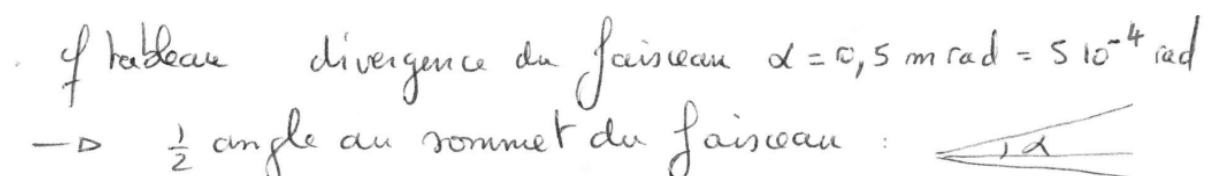 . cf tableau divergence du faisceau α = 0,5 mrad = 5 10⁻⁴ rad
→ 1/2 angle au sommet du faisceau : α